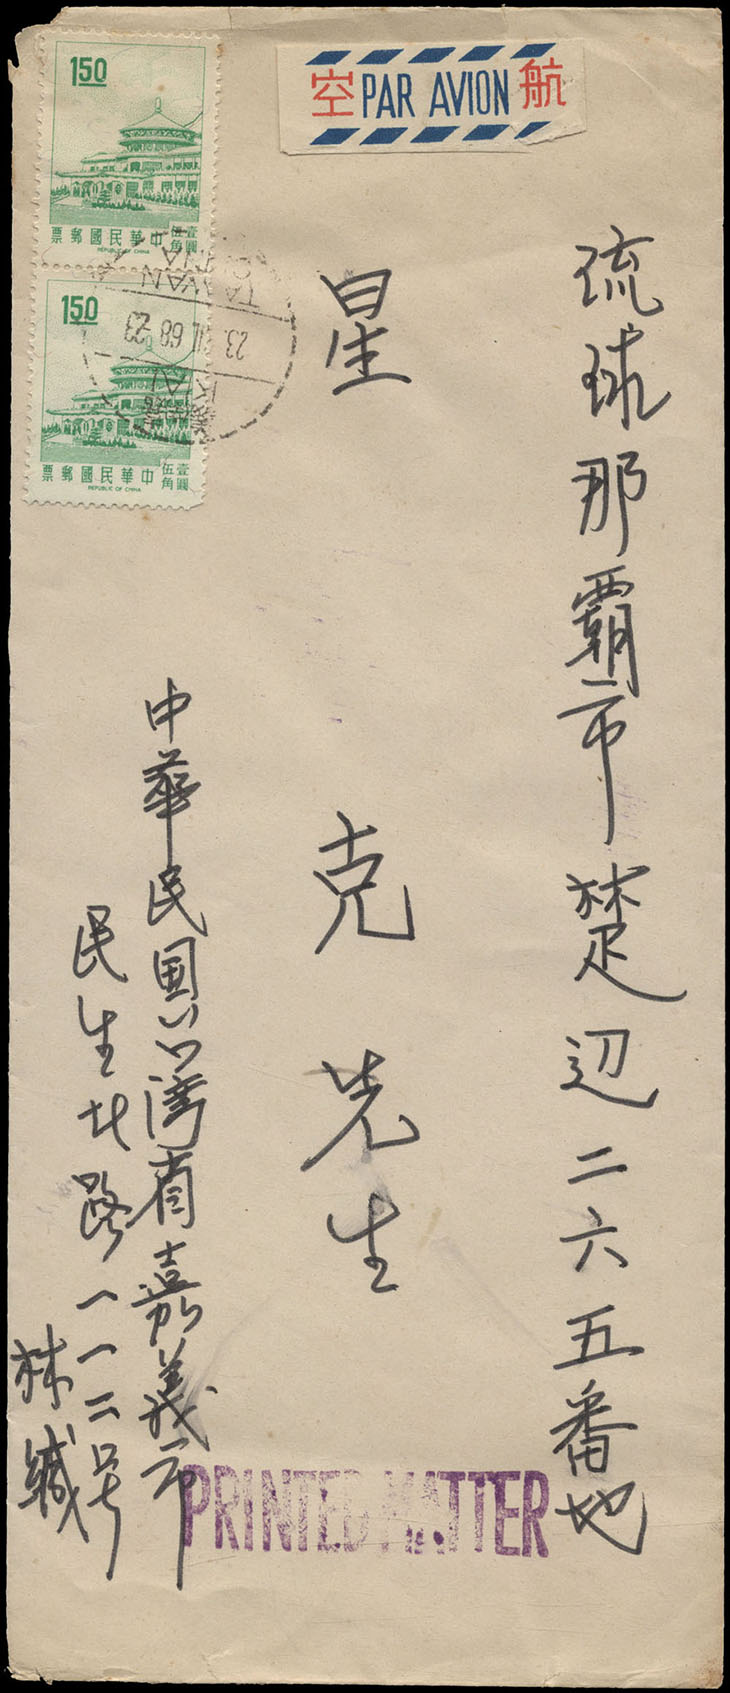 1.50
票郵國民華中
伍角
壹圓
REPUBLIC OF CHINA
1.50
票郵國民華中
伍角
壹圓
REPUBLIC OF CHINA
空 PAR AVION 航
TAIWAN
23. 68 -23
琉球那霸市楚辺二六五番地
星克先生
中華民国台湾省嘉義市
民生北路一一二号
林緘
PRINTED MATTER